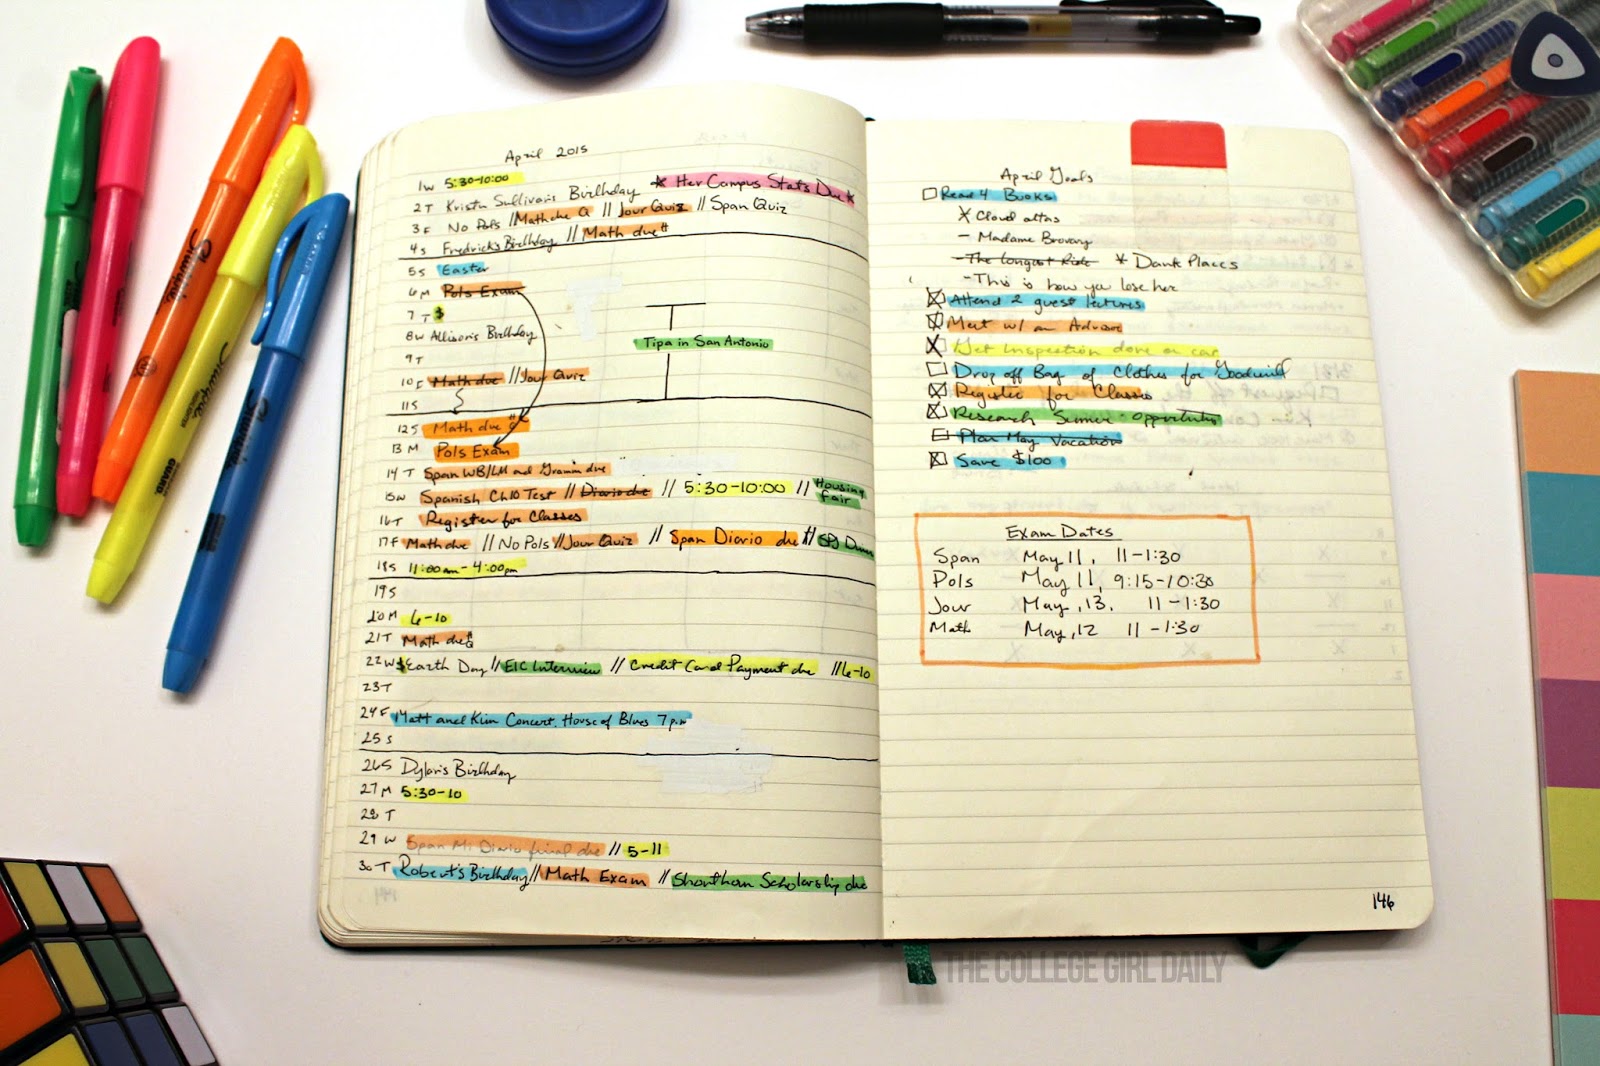 April 2015
1 W 5:30-10:00
2 T Kristin Sullivan's Birthday * Her Campus Stats Due *
3 F No Pols // Math due Q // Jour Quiz // Span Quiz
4 S Fredrick's Birthday // Math due
5 S Easter
6 M Pols Exam
7 T $
8 W Allison's Birthday
Tipa in San Antonio
9 T
10 F Math due // Jour Quiz
11 S
12 S Math due
13 M Pols Exam
14 T Span WB/LM and Gramm due
15 W Spanish Ch10 Test // Diario due // 5:30-10:00 // Housing Fair
16 T Register for Classes
17 F Math due // No Pols // Jour Quiz // Span Diario due // SPJ
18 S 11:00am - 4:00pm
19 S
20 M 6-10
21 T Math due
22 W $ Earth Day // EIC Interview // Credit Card Payment due // 6-10
23 T
24 F Matt and Kim Concert, House of Blues 7 p.m
25 S
26 S Dylan's Birthday
27 M 5:30-10
28 T
29 W Span Mi Diario final due // 5-11
30 T Robert's Birthday // Math Exam // Shorthorn Scholarship due
April Goals
Read 4 Books
X Cloud atlas
- Madame Brovary
- The Longest Ride * Dark Places
- This is how you lose her
Attend 2 guest lectures
Meet w/ an Advisor
Get Inspection done on car
Drop off Bag of Clothes for Goodwill
Register for Classes
Research Summer opportunities
Plan May Vacation
Save $100
Exam Dates
Span May 11, 11-1:30
Pols May 11, 9:15-10:30
Jour May, 13, 11-1:30
Math May, 12 11-1:30
146
THE COLLEGE GIRL DAILY
Sharpie
Sharpie
Sharpie